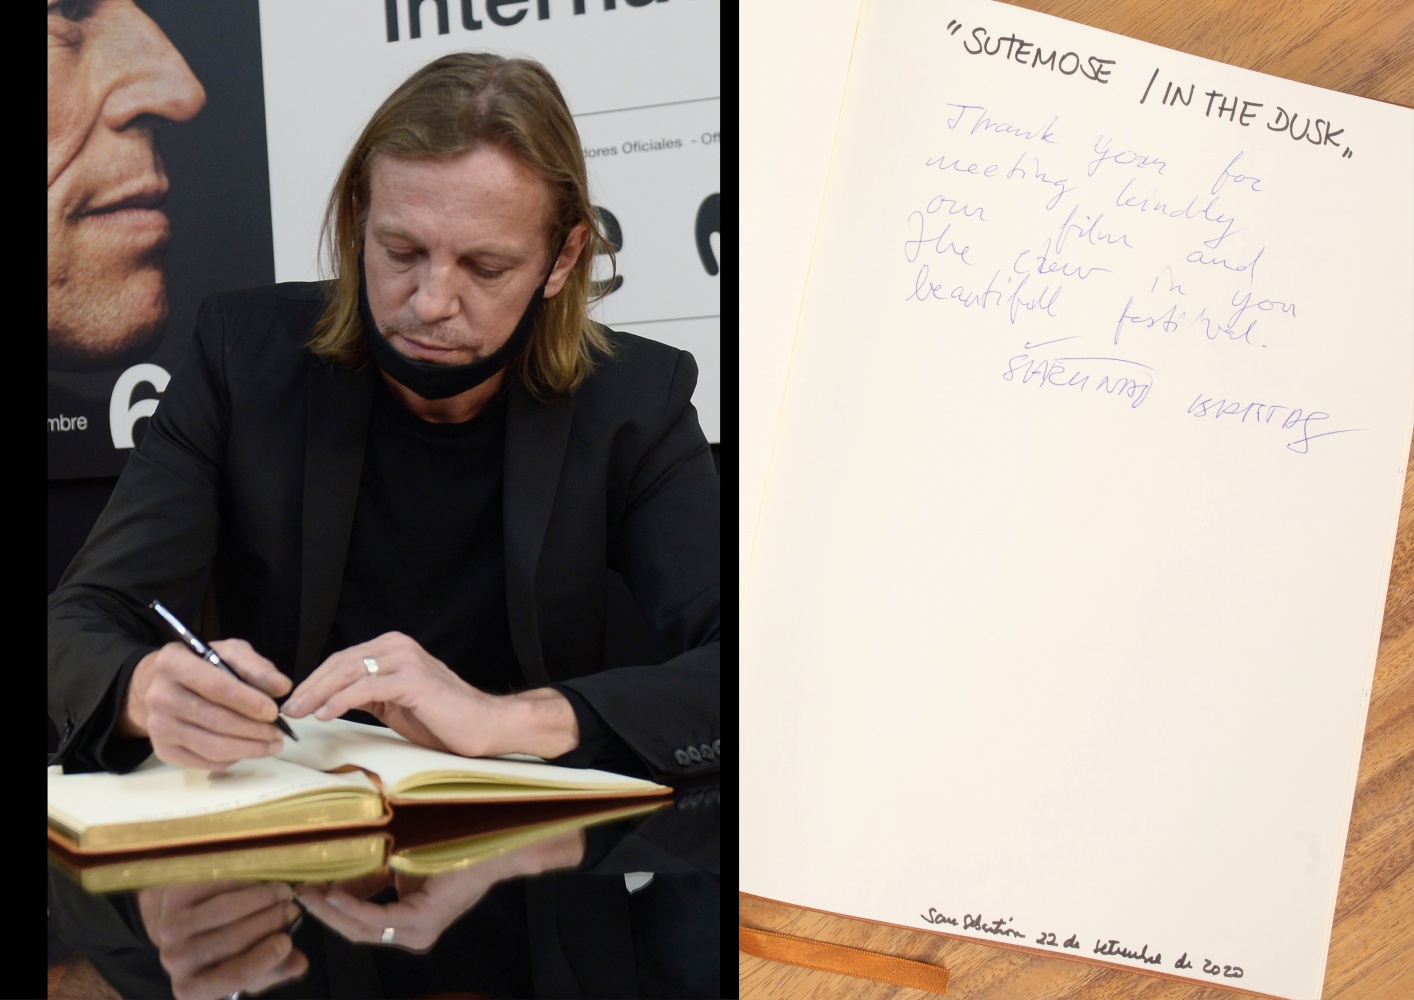 Interna
dores Oficiales - Off
e
mbre
6
"SUTEMOSE / IN THE DUSK„
Thank your for
meeting kindly
our film and
the crew in you
beautifull festival.
ŠARUNAS BARTAS
San Sebastián 22 de setiembre de 2020